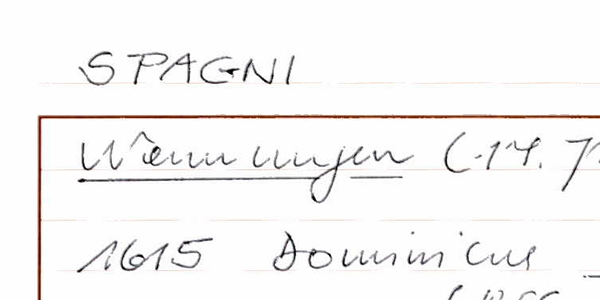 SPAGNI
Wiennungen (-17. J
1615 Dominicus